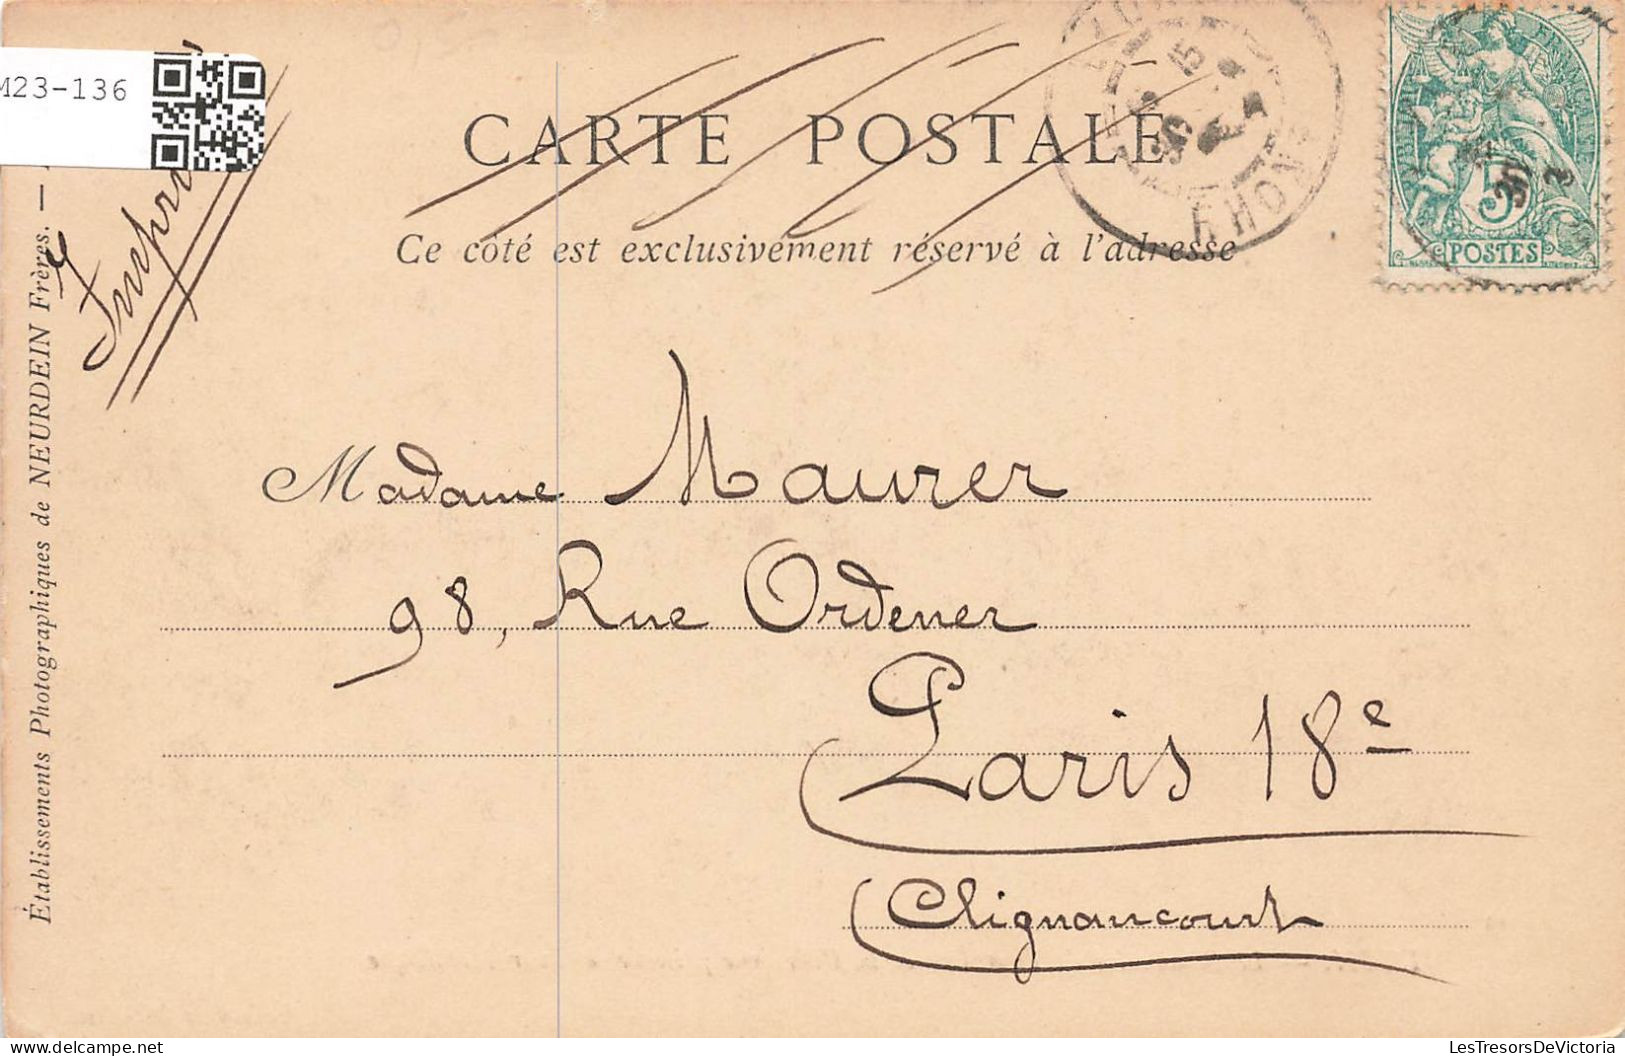 M23-136
CARTE POSTALE
Ce côté est exclusivement réservé à l'adresse
RHONE
FRANÇAISE
5
POSTES
Établissements Photographiques de NEURDEIN Frères. —
Madame Maurer
98, Rue Ordener
Paris 18e
Clignancourt
LesTresorsDeVictoria